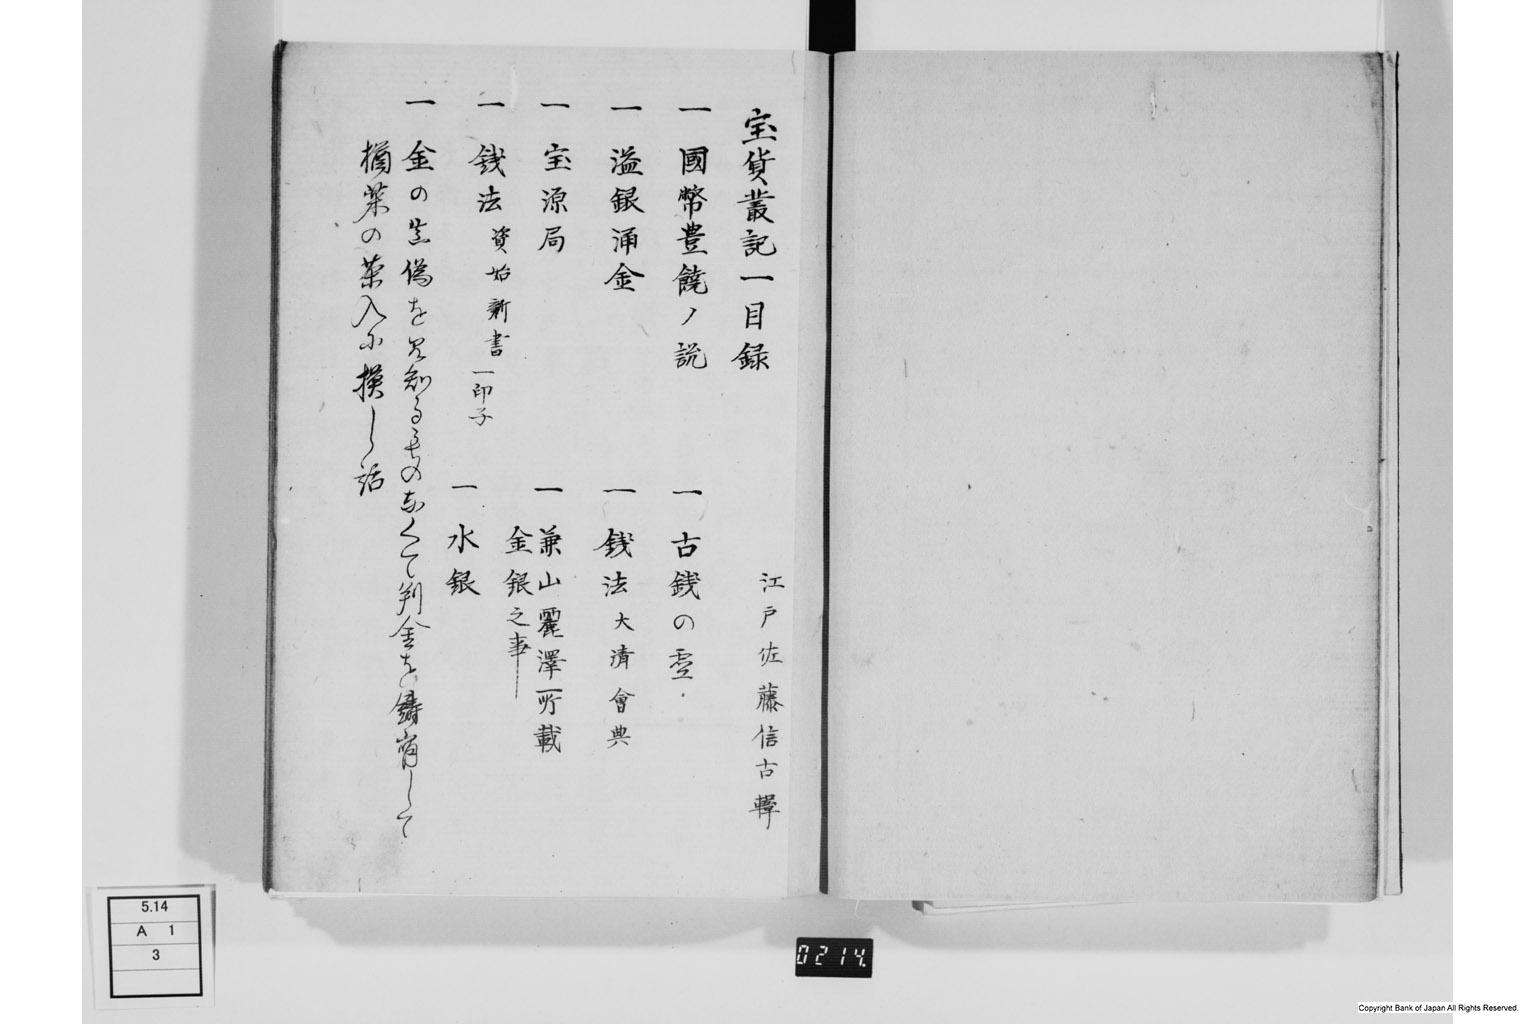 宝貨叢記一目録
江戸佐藤信古輯
一 國幣豊饒ノ説
一 古銭の霊
一 溢銀涌金
一 銭法 大清會典
一 宝源局
一 兼山麗澤所載
金銀之事
一 銭法 資始新書 一印子
一 水銀
一 金の真偽を見知るものなくて判金を鋳有して
楢柴の茶入に換し話
5.14
A 1
3
0214.
Copyright Bank of Japan All Rights Reserved.